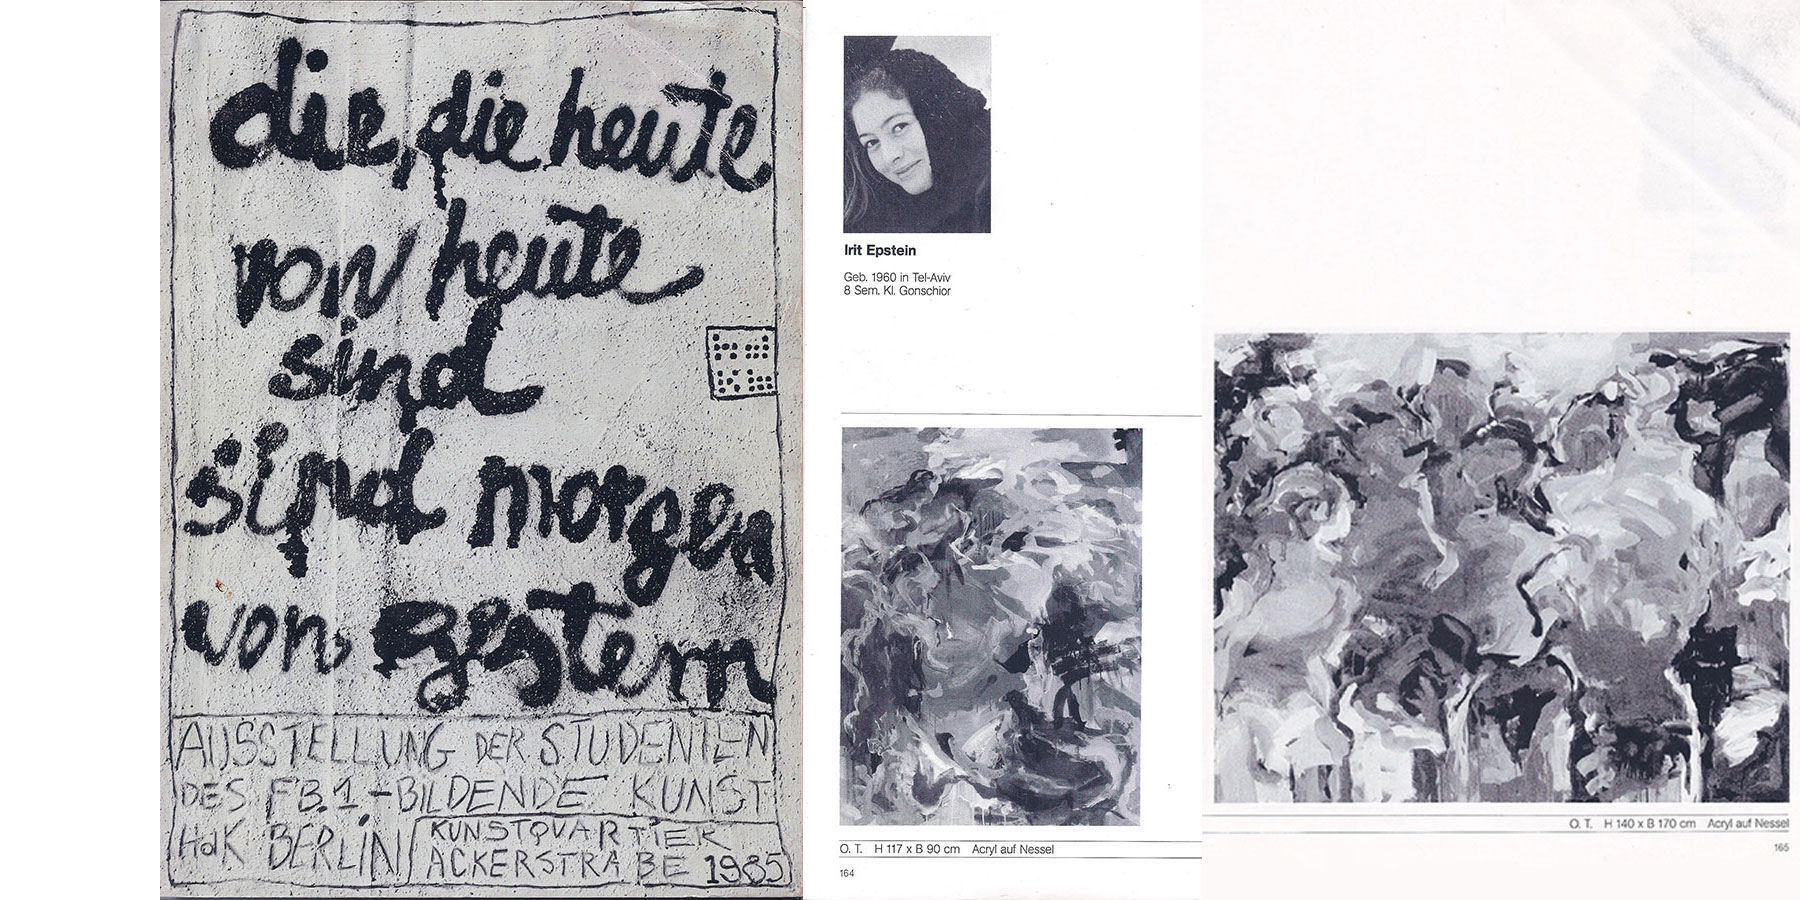 die, die heute
von heute
sind
sind morgen
von gestern
AUSSTELLUNG DER STUDENTEN
DES FB.1-BILDENDE KUNST
HdK BERLIN
KUNSTQUARTIER
ACKERSTRAßE 1985
Irit Epstein
Geb. 1960 in Tel-Aviv
8 Sem. Kl. Gonschior
O. T. H 117 x B 90 cm Acryl auf Nessel
164
O. T. H 140 x B 170 cm Acryl auf Nessel
165